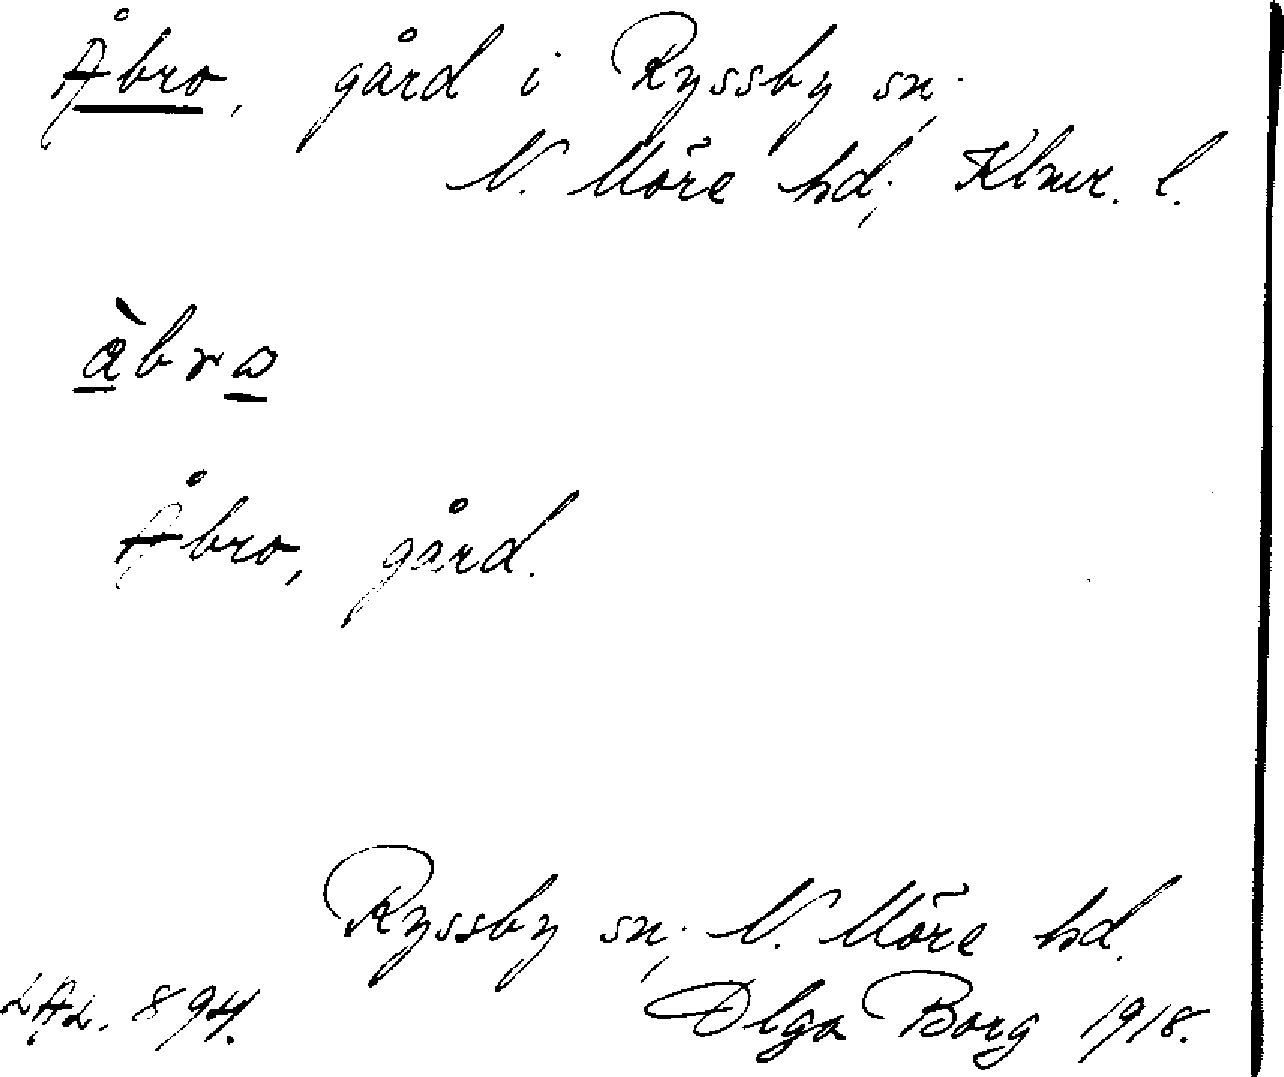 Åbro, gård i Ryssby sn.,
N. Möre hd., Klmr. l.
àbro
Åbro, gård.
Ryssby sn., N. Möre hd.
LAL. 894. Olga Borg 1918.